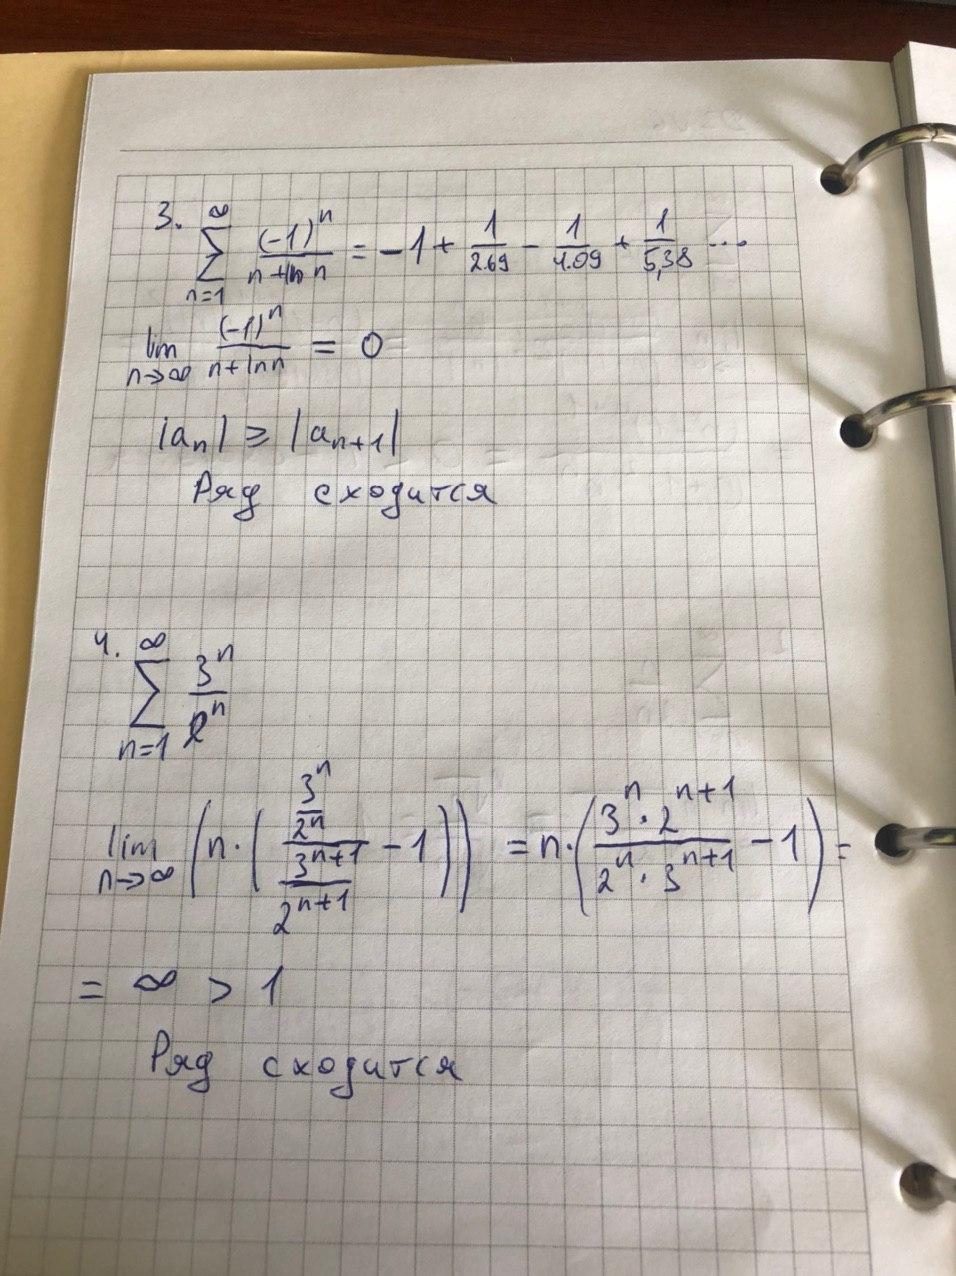 3. ∑_{n=1}^{∞} (-1)^n / (n + ln n) = -1 + 1/2.69 - 1/4.09 + 1/5,38 ...
lim_{n→∞} (-1)^n / (n + ln n) = 0
|a_n| ≥ |a_{n+1}|
Ряд сходится
4. ∑_{n=1}^{∞} 3^n / 2^n
lim_{n→∞} (n · ((3^n / 2^n) / (3^{n+1} / 2^{n+1}) - 1)) = n · ((3^n · 2^{n+1}) / (2^n · 3^{n+1}) - 1) =
= ∞ > 1
Ряд сходится